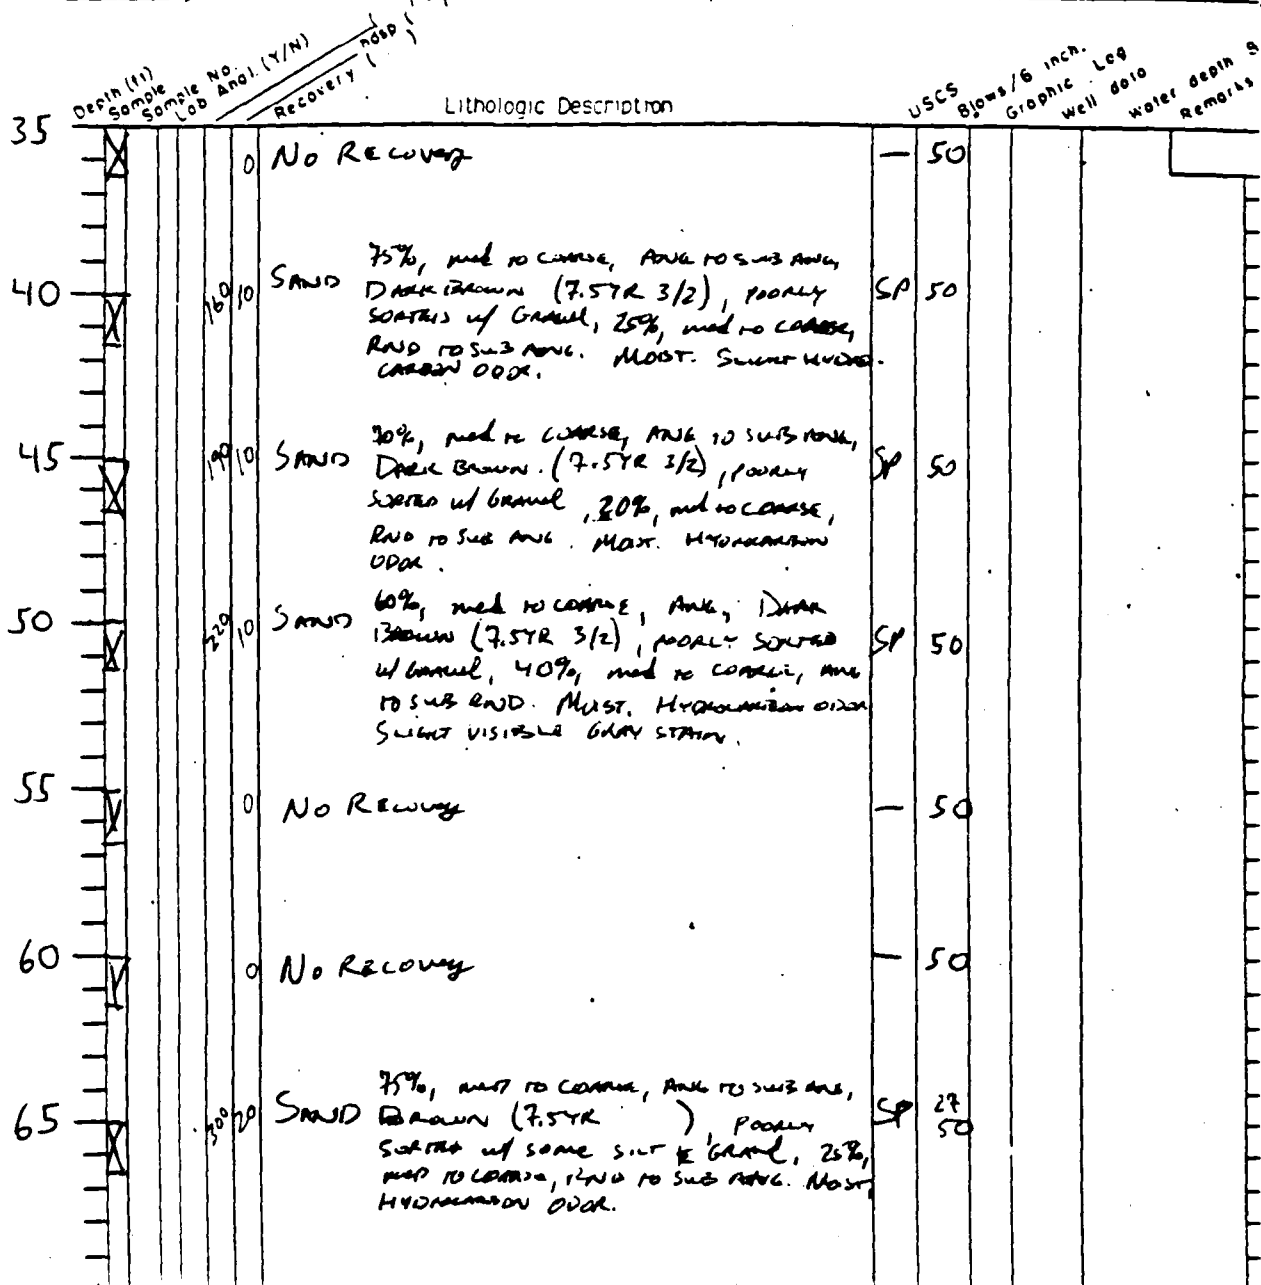 Depth (ft)
Sample
Sample No.
Lab Anal. (Y/N)
Recovery ( )
Lithologic Description
USCS
Blows/6 inch.
Graphic Log
Well data
Water depth
Remarks
35
0 No Recovery — 50
40
160 10 SAND 75%, med to coarse, ANG TO SUB ANG, SP 50
DARK BROWN (7.5YR 3/2), POORLY
SORTED w/ GRAVEL, 25%, med to coarse,
RND TO SUB ANG. MOIST. SLIGHT HYDRO-
CARBON ODOR.
45
190 10 SAND med to coarse, ANG TO SUB ANG, SP 50
DARK BROWN. (7.5YR 3/2), POORLY
SORTED w/ GRAVEL, 20%, med to coarse,
RND TO SUB ANG. MOIST. HYDROCARBON
ODOR.
50
220 10 SAND 60%, med to coarse, ANG, DARK SP 50
BROWN (7.5YR 3/2), POORLY SORTED
w/ GRAVEL, 40%, med to coarse, ANG
TO SUB RND. MOIST. HYDROCARBON ODOR
SLIGHT VISIBLE GRAY STAIN.
55
0 No Recovery — 50
60
0 No Recovery — 50
65
300 20 SAND 75%, MED TO COARSE, ANG TO SUB ANG, SP 27
BROWN (7.5YR ), POORLY 50
SORTED w/ SOME SILT & GRAVEL, 25%,
MED TO COARSE, RND TO SUB ANG. MOIST,
HYDROCARBON ODOR.